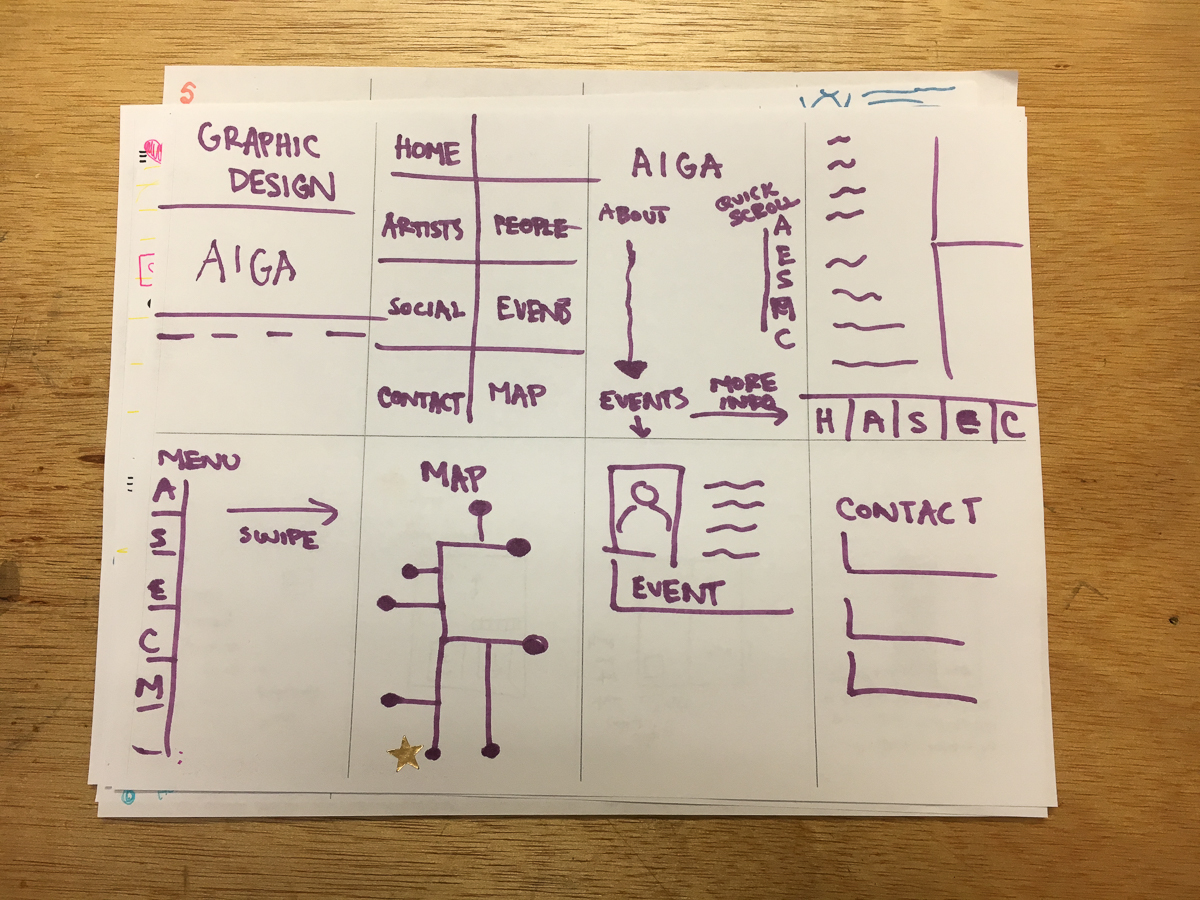 S
GRAPHIC
DESIGN
AIGA
HOME
ARTISTS
PEOPLE
SOCIAL
EVENTS
CONTACT
MAP
AIGA
ABOUT
QUICK
SCROLL
A
E
S
M
C
EVENTS
MORE
INFO
H A S E C
MENU
A
S
E
C
M
SWIPE
MAP
EVENT
CONTACT